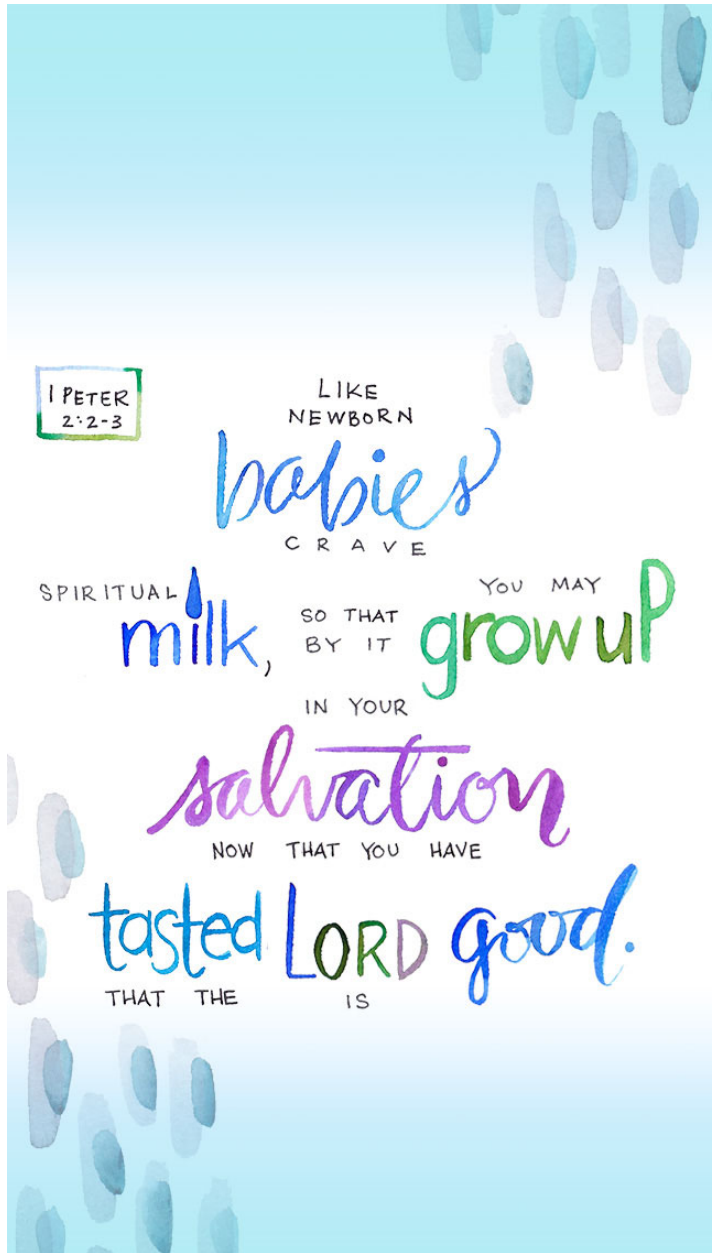 1 PETER
2:2-3
LIKE
NEWBORN
babies
CRAVE
SPIRITUAL
milk,
SO THAT
BY IT
YOU MAY
grow up
IN YOUR
salvation
NOW THAT YOU HAVE
tasted
THAT THE
LORD
IS
good.